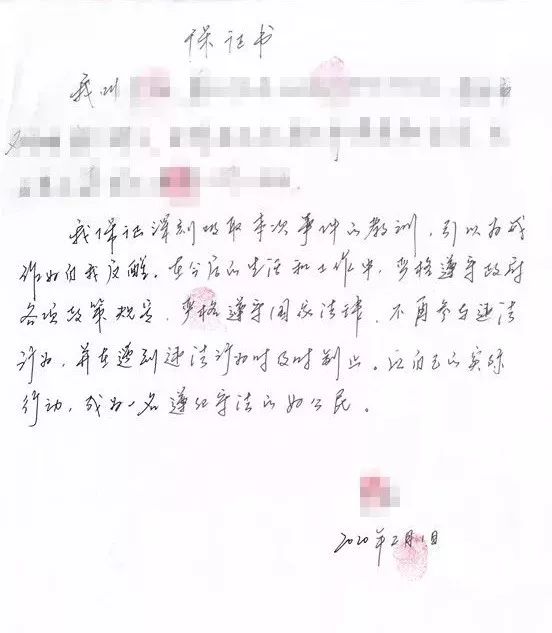 保证书
我叫
我保证深刻吸取本次事件的教训，引以为戒
作好自我反醒。在今后的生活和工作中，严格遵守政府
各项政策规定，严格遵守国家法律，不再参与违法
行为，并在遇到违法行为时及时制止。以自己的实际
行动，成为一名遵纪守法的好公民。
2020年2月1日